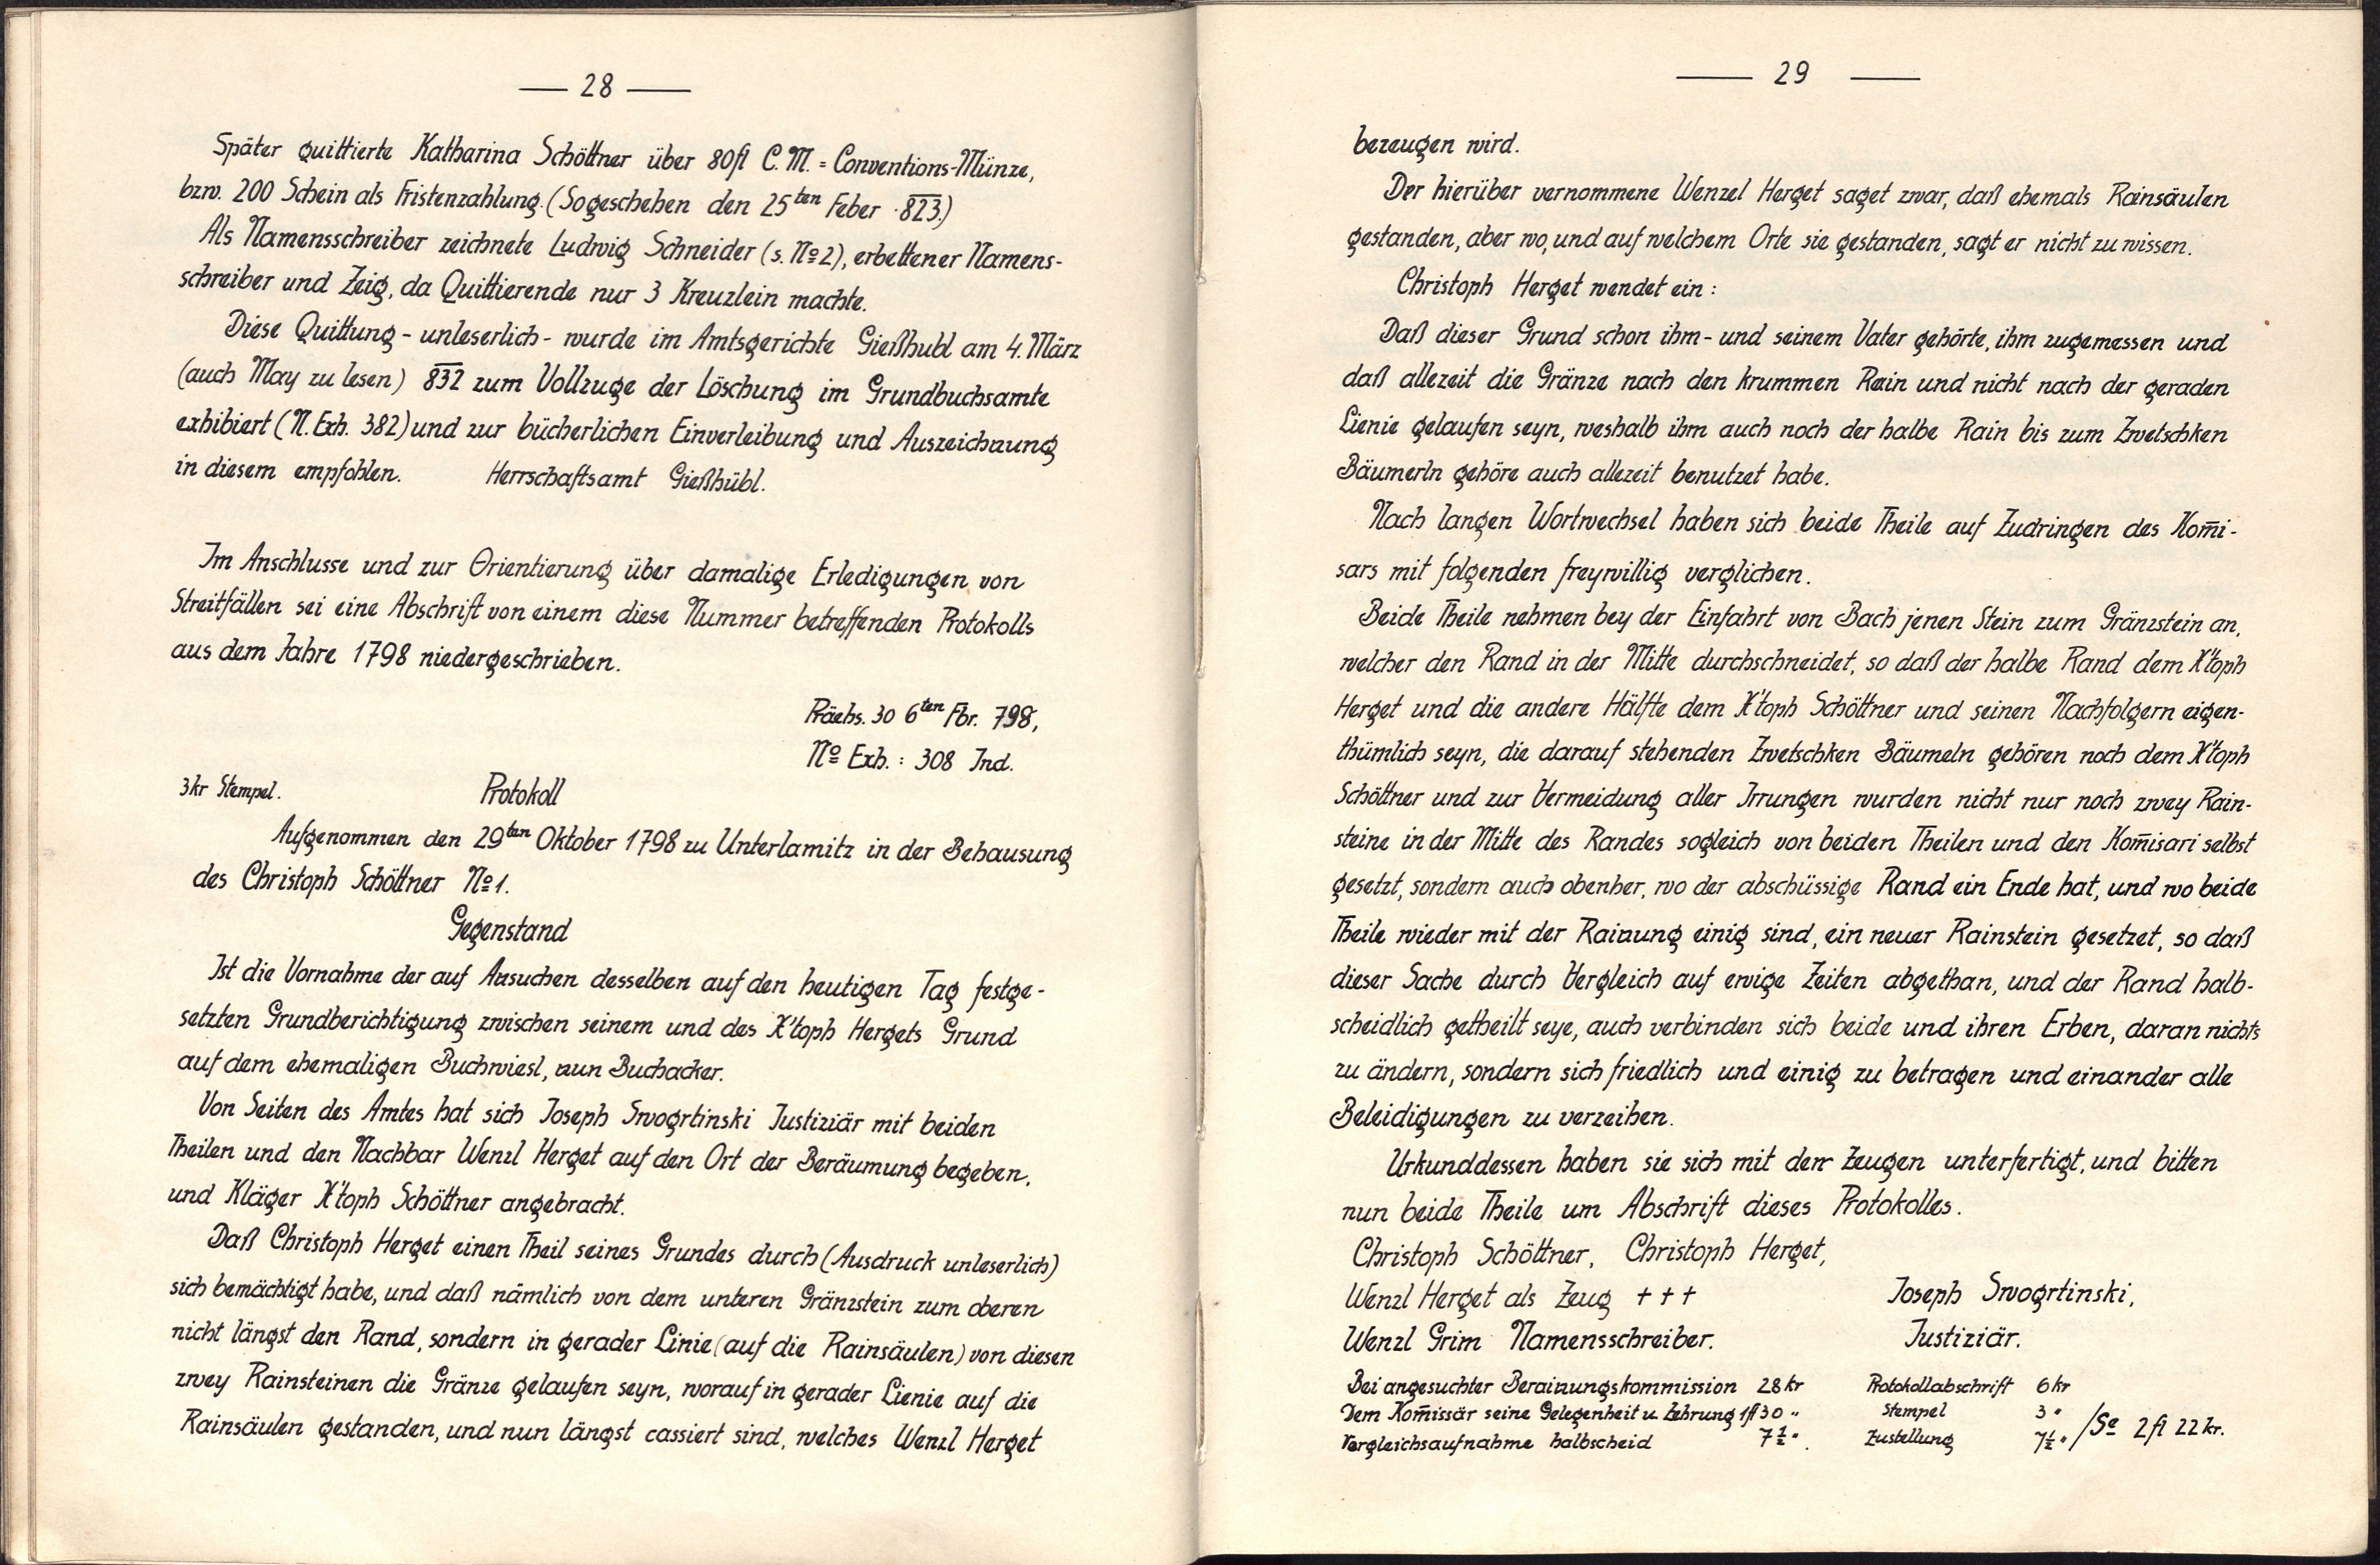 — 28 —
Später quittierte Katharina Schöttner über 80fl C.M. = Conventions-Münze,
bzw. 200 Schein als Fristenzahlung. (Sogeschehen den 25ten Feber 823.)
Als Namensschreiber zeichnete Ludwig Schneider (s. No 2), erbettener Namens-
schreiber und Zeig, da Quittierende nur 3 Kreuzlein machte.
Diese Quittung - unleserlich - wurde im Amtsgerichte Gießhubl am 4. März
(auch May zu lesen) 832 zum Vollzuge der Löschung im Grundbuchsamte
exhibiert (N. Exh. 382) und zur bücherlichen Einverleibung und Auszeichnung
in diesem empfohlen. Herrschaftsamt Gießhübl.
Im Anschlusse und zur Orientierung über damalige Erledigungen von
Streitfällen sei eine Abschrift von einem diese Nummer betreffenden Protokolls
aus dem Jahre 1798 niedergeschrieben.
Prächs. 30 6ten Fbr. 798,
No Exh.: 308 Ind.
3kr Stempel. Protokoll
Aufgenommen den 29ten Oktober 1798 zu Unterlamitz in der Behausung
des Christoph Schöttner No 1.
Gegenstand
Ist die Vornahme der auf Ansuchen desselben auf den heutigen Tag festge-
setzten Grundberichtigung zwischen seinem und des X'toph Hergets Grund
auf dem ehemaligen Buchwiesl, nun Buchacker.
Von Seiten des Amtes hat sich Joseph Swogrtinski Justiziär mit beiden
Theilen und den Nachbar Wenzl Herget auf den Ort der Beräumung begeben,
und Kläger X'toph Schöttner angebracht.
Daß Christoph Herget einen Theil seines Grundes durch (Ausdruck unleserlich)
sich bemächtigt habe, und daß nämlich von dem unteren Gränzstein zum oberen
nicht längst den Rand, sondern in gerader Linie (auf die Rainsäulen) von diesen
zwey Rainsteinen die Gränze gelaufen seyn, worauf in gerader Lienie auf die
Rainsäulen gestanden, und nun längst cassiert sind, welches Wenzl Herget
— 29 —
bezeugen wird.
Der hierüber vernommene Wenzel Herget saget zwar, daß ehemals Rainsäulen
gestanden, aber wo, und auf welchem Orte sie gestanden, sagt er nicht zu wissen.
Christoph Herget wendet ein:
Daß dieser Grund schon ihm - und seinem Vater gehörte, ihm zugemessen und
daß allezeit die Gränze nach den krummen Rain und nicht nach der geraden
Lienie gelaufen seyn, weshalb ihm auch noch der halbe Rain bis zum Zwetschken
Bäumerln gehöre auch allezeit benutzet habe.
Nach langen Wortwechsel haben sich beide Theile auf Zudringen des Kom̄i-
sars mit folgenden freywillig verglichen.
Beide Theile nehmen bey der Einfahrt von Bach jenen Stein zum Gränzstein an,
welcher den Rand in der Mitte durchschneidet, so daß der halbe Rand dem X'toph
Herget und die andere Hälfte dem X'toph Schöttner und seinen Nachfolgern eigen-
thümlich seyn, die darauf stehenden Zwetschken Bäumeln gehören noch dem X'toph
Schöttner und zur Vermeidung aller Irrungen wurden nicht nur noch zwey Rain-
steine in der Mitte des Randes sogleich von beiden Theilen und den Kom̄isari selbst
gesetzt, sondern auch obenher, wo der abschüssige Rand ein Ende hat, und wo beide
Theile wieder mit der Rainung einig sind, ein neuer Rainstein gesetzet, so daß
dieser Sache durch Vergleich auf ewige Zeiten abgethan, und der Rand halb-
scheidlich getheilt seye, auch verbinden sich beide und ihren Erben, daran nichts
zu ändern, sondern sich friedlich und einig zu betragen und einander alle
Beleidigungen zu verzeihen.
Urkunddessen haben sie sich mit den Zeugen unterfertigt, und bitten
nun beide Theile um Abschrift dieses Protokolles.
Christoph Schöttner, Christoph Herget,
Wenzl Herget als Zeug + + + Joseph Swogrtinski,
Wenzl Grim Namensschreiber. Justiziär.
Bei angesuchter Berainungskommission 28 kr Protokollabschrift 6 kr
Dem Kom̄issär seine Gelegenheit u. Zehrung 1fl 30 " Stempel 3 "
Vergleichsaufnahme halbscheid 7½ " Zustellung 7½ " / Se 2 fl 22 kr.